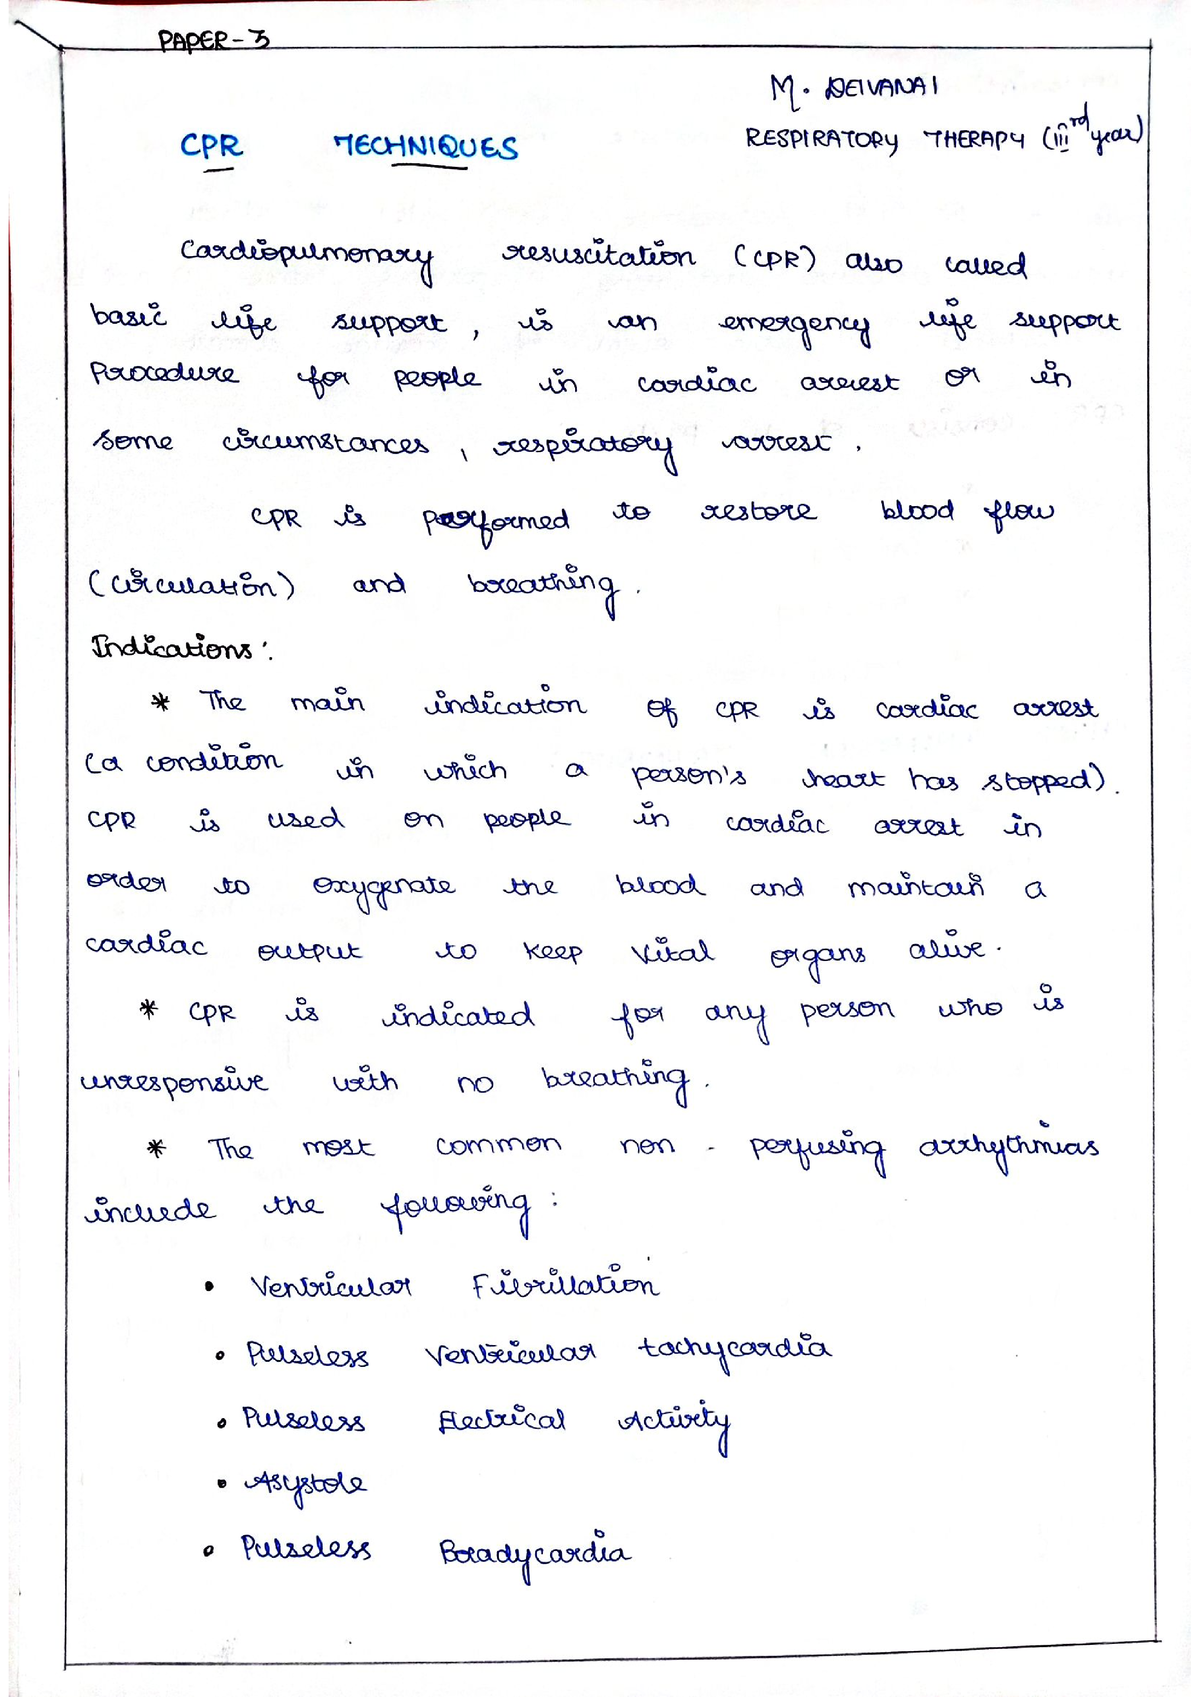 PAPER-3
M. DEIVANAI
CPR TECHNIQUES
RESPIRATORY THERAPY (III rd year)
Cardiopulmonary resuscitation (CPR) also called
basic life support, is an emergency life support
Procedure for people in cardiac arrest or in
some circumstances, respiratory arrest.
CPR is performed to restore blood flow
(circulation) and breathing.
Indications:
* The main indication of CPR is cardiac arrest
(a condition in which a person's heart has stopped).
CPR is used on people in cardiac arrest in
order to oxygenate the blood and maintain a
cardiac output to keep vital organs alive.
* CPR is indicated for any person who is
unresponsive with no breathing.
* The most common non-perfusing arrhythmias
include the following:
• Ventricular Fibrillation
• Pulseless Ventricular tachycardia
• Pulseless Electrical Activity
• Asystole
• Pulseless Bradycardia